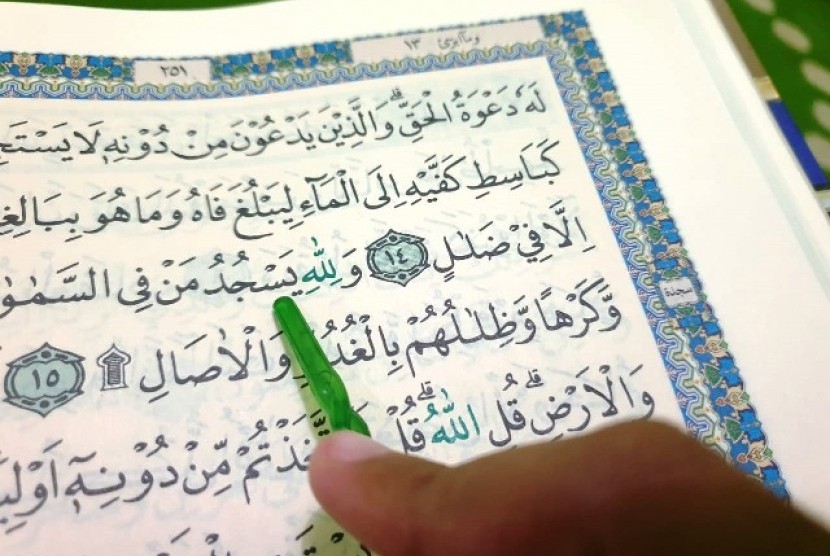 وماابرئ ١٣
٢٥١
لَهٗ دَعْوَةُ الْحَقِّۗ وَالَّذِيْنَ يَدْعُوْنَ مِنْ دُوْنِهٖ لَا يَسْتَجِ
كَبَاسِطِ كَفَّيْهِ اِلَى الْمَاۤءِ لِيَبْلُغَ فَاهُ وَمَا هُوَ بِبَالِغِ
اِلَّا فِيْ ضَلٰلٍ ١٤ وَلِلّٰهِ يَسْجُدُ مَنْ فِى السَّمٰوٰ
سجدة
وَّكَرْهًا وَّظِلٰلُهُمْ بِالْغُدُوِّ وَالْاٰصَالِ ۩ ١٥
وَالْاَرْضِۗ قُلِ اللّٰهُۗ قُلْ تَّخَذْتُمْ مِّنْ دُوْنِهٖٓ اَوْلِيَ